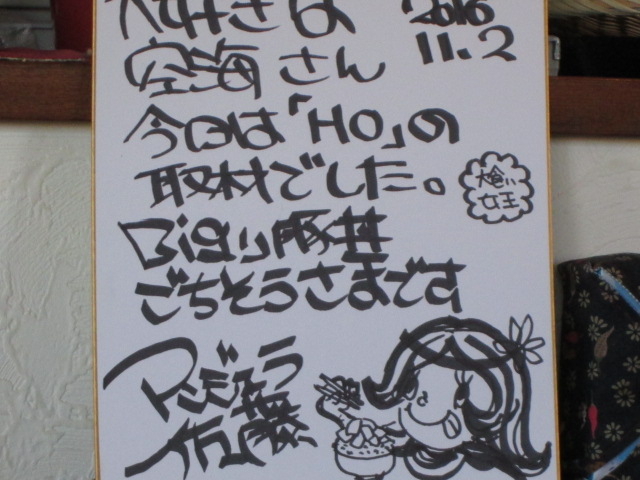 大好きな
空海さん
今日は「HO」の
取材でした。
Bigな豚丼
ごちそうさまです
アンジェラ
佐藤
2016
11.2
大食い
女王